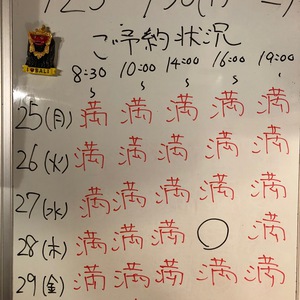 ご予約状況
8:30 10:00 14:00 16:00 19:00
〜 〜 〜 〜 〜
25(月) 満 満 満 満 満
26(火) 満 満 満 満 満
27(水) 満 満 満 満 満
28(木) 満 満 満 ○ 満
29(金) 満 満 満 満 満